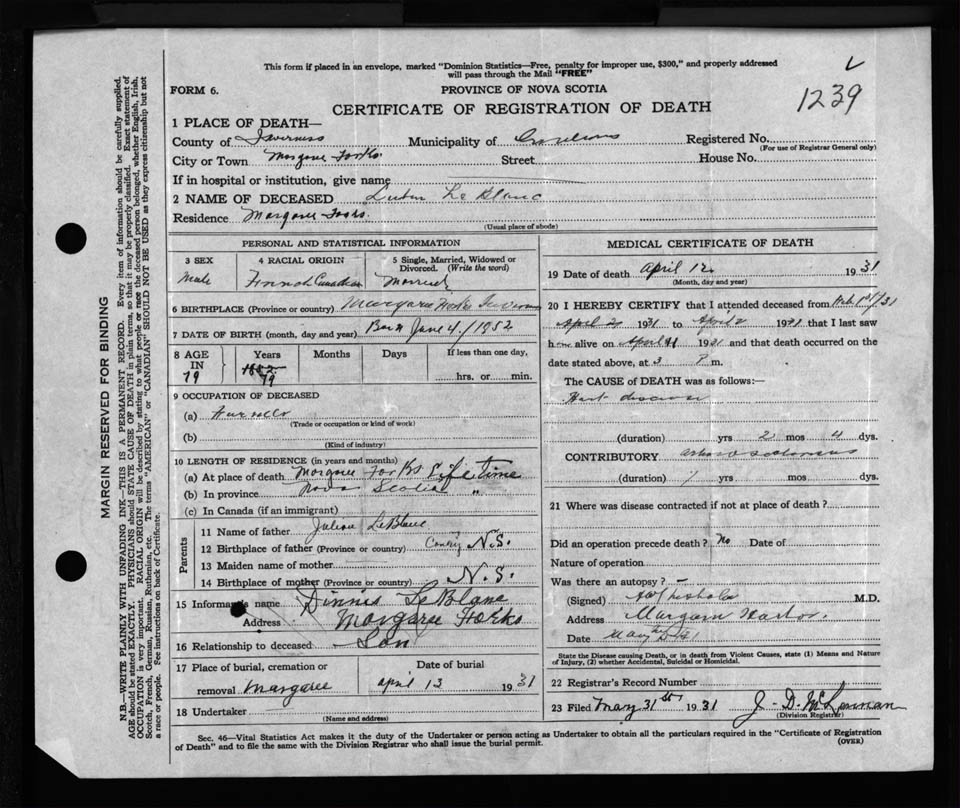 This form if placed in an envelope, marked "Dominion Statistics—Free, penalty for improper use, $300," and properly addressed
will pass through the Mail "FREE"
1239
FORM 6.
PROVINCE OF NOVA SCOTIA
CERTIFICATE OF REGISTRATION OF DEATH
1 PLACE OF DEATH—
County of Inverness Municipality of Registered No.
(For use of Registrar General only)
City or Town Margaree Forks Street House No.
If in hospital or institution, give name
2 NAME OF DECEASED Le Blanc
Residence Margaree Forks.
(Usual place of abode)
PERSONAL AND STATISTICAL INFORMATION
3 SEX
Male
4 RACIAL ORIGIN
French Canadian
5 Single, Married, Widowed or Divorced. (Write the word)
Married
6 BIRTHPLACE (Province or country) Margaree Forks Inverness
7 DATE OF BIRTH (month, day and year) Born June 4/1952
8 AGE IN
79
Years Months Days If less than one day,
1852
79
hrs. or min.
9 OCCUPATION OF DECEASED
(a) Farmer
(Trade or occupation or kind of work)
(b)
(Kind of industry)
10 LENGTH OF RESIDENCE (in years and months)
(a) At place of death Margaree Forks Life time
(b) In province Nova Scotia "
(c) In Canada (if an immigrant)
Parents
11 Name of father Julian LeBlanc
12 Birthplace of father (Province or country) N.S.
13 Maiden name of mother
14 Birthplace of mother (Province or country) N.S.
15 Informant's name Dinnis LeBlanc
Address Margaree Forks
16 Relationship to deceased Son
17 Place of burial, cremation or removal Margaree
Date of burial
april 13 1931
18 Undertaker
(Name and address)
MEDICAL CERTIFICATE OF DEATH
19 Date of death April 12 1931
(Month, day and year)
20 I HEREBY CERTIFY that I attended deceased from
April 2 1931 to April 2 1931 that I last saw
him alive on April 11 1931 and that death occurred on the
date stated above, at 3 P m.
The CAUSE of DEATH was as follows:—
Hart disease
(duration) yrs 2 mos 4 dys.
CONTRIBUTORY
(duration) yrs mos dys.
21 Where was disease contracted if not at place of death?
Did an operation precede death? No Date of
Nature of operation
Was there an autopsy? –
(Signed) M.D.
Address Margaree Harbor
Date May
State the Disease causing Death, or in death from Violent Causes, state (1) Means and Nature
of Injury, (2) whether Accidental, Suicidal or Homicidal.
22 Registrar's Record Number
23 Filed May 31st 1931 J. D. McLennan
(Division Registrar)
Sec. 46—Vital Statistics Act makes it the duty of the Undertaker or person acting as Undertaker to obtain all the particulars required in the "Certificate of Registration
of Death" and to file the same with the Division Registrar who shall issue the burial permit.
(OVER)
MARGIN RESERVED FOR BINDING
N.B.—WRITE PLAINLY WITH UNFADING INK—THIS IS A PERMANENT RECORD. Every item of information should be carefully supplied.
AGE should be stated EXACTLY. PHYSICIANS should STATE CAUSE OF DEATH in plain terms, so that it may be properly classified. Exact statement of
OCCUPATION is very important. RACIAL ORIGIN will be described by stating to what people or race the deceased person belonged, whether English, Irish,
Scotch, French, German, Russian, Ruthenian, etc. The terms "AMERICAN" or "CANADIAN" SHOULD NOT BE USED as they express citizenship but not
a race or people. See instructions on back of Certificate.